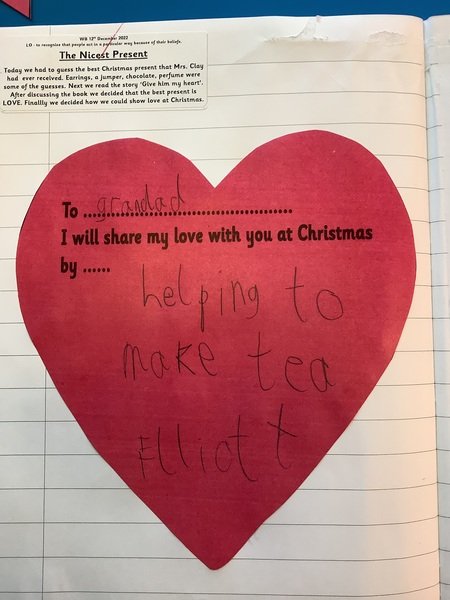 WB 12th December 2022
LO - to recognise that people act in a particular way because of their beliefs.
The Nicest Present
Today we had to guess the best Christmas present that Mrs. Clay
had ever received. Earrings, a jumper, chocolate, perfume were
some of the guesses. Next we read the story 'Give him my heart'.
After discussing the book we decided that the best present is
LOVE. Finallly we decided how we could show love at Christmas.
To grandad
I will share my love with you at Christmas
by ......
helping to
make tea
Elliott